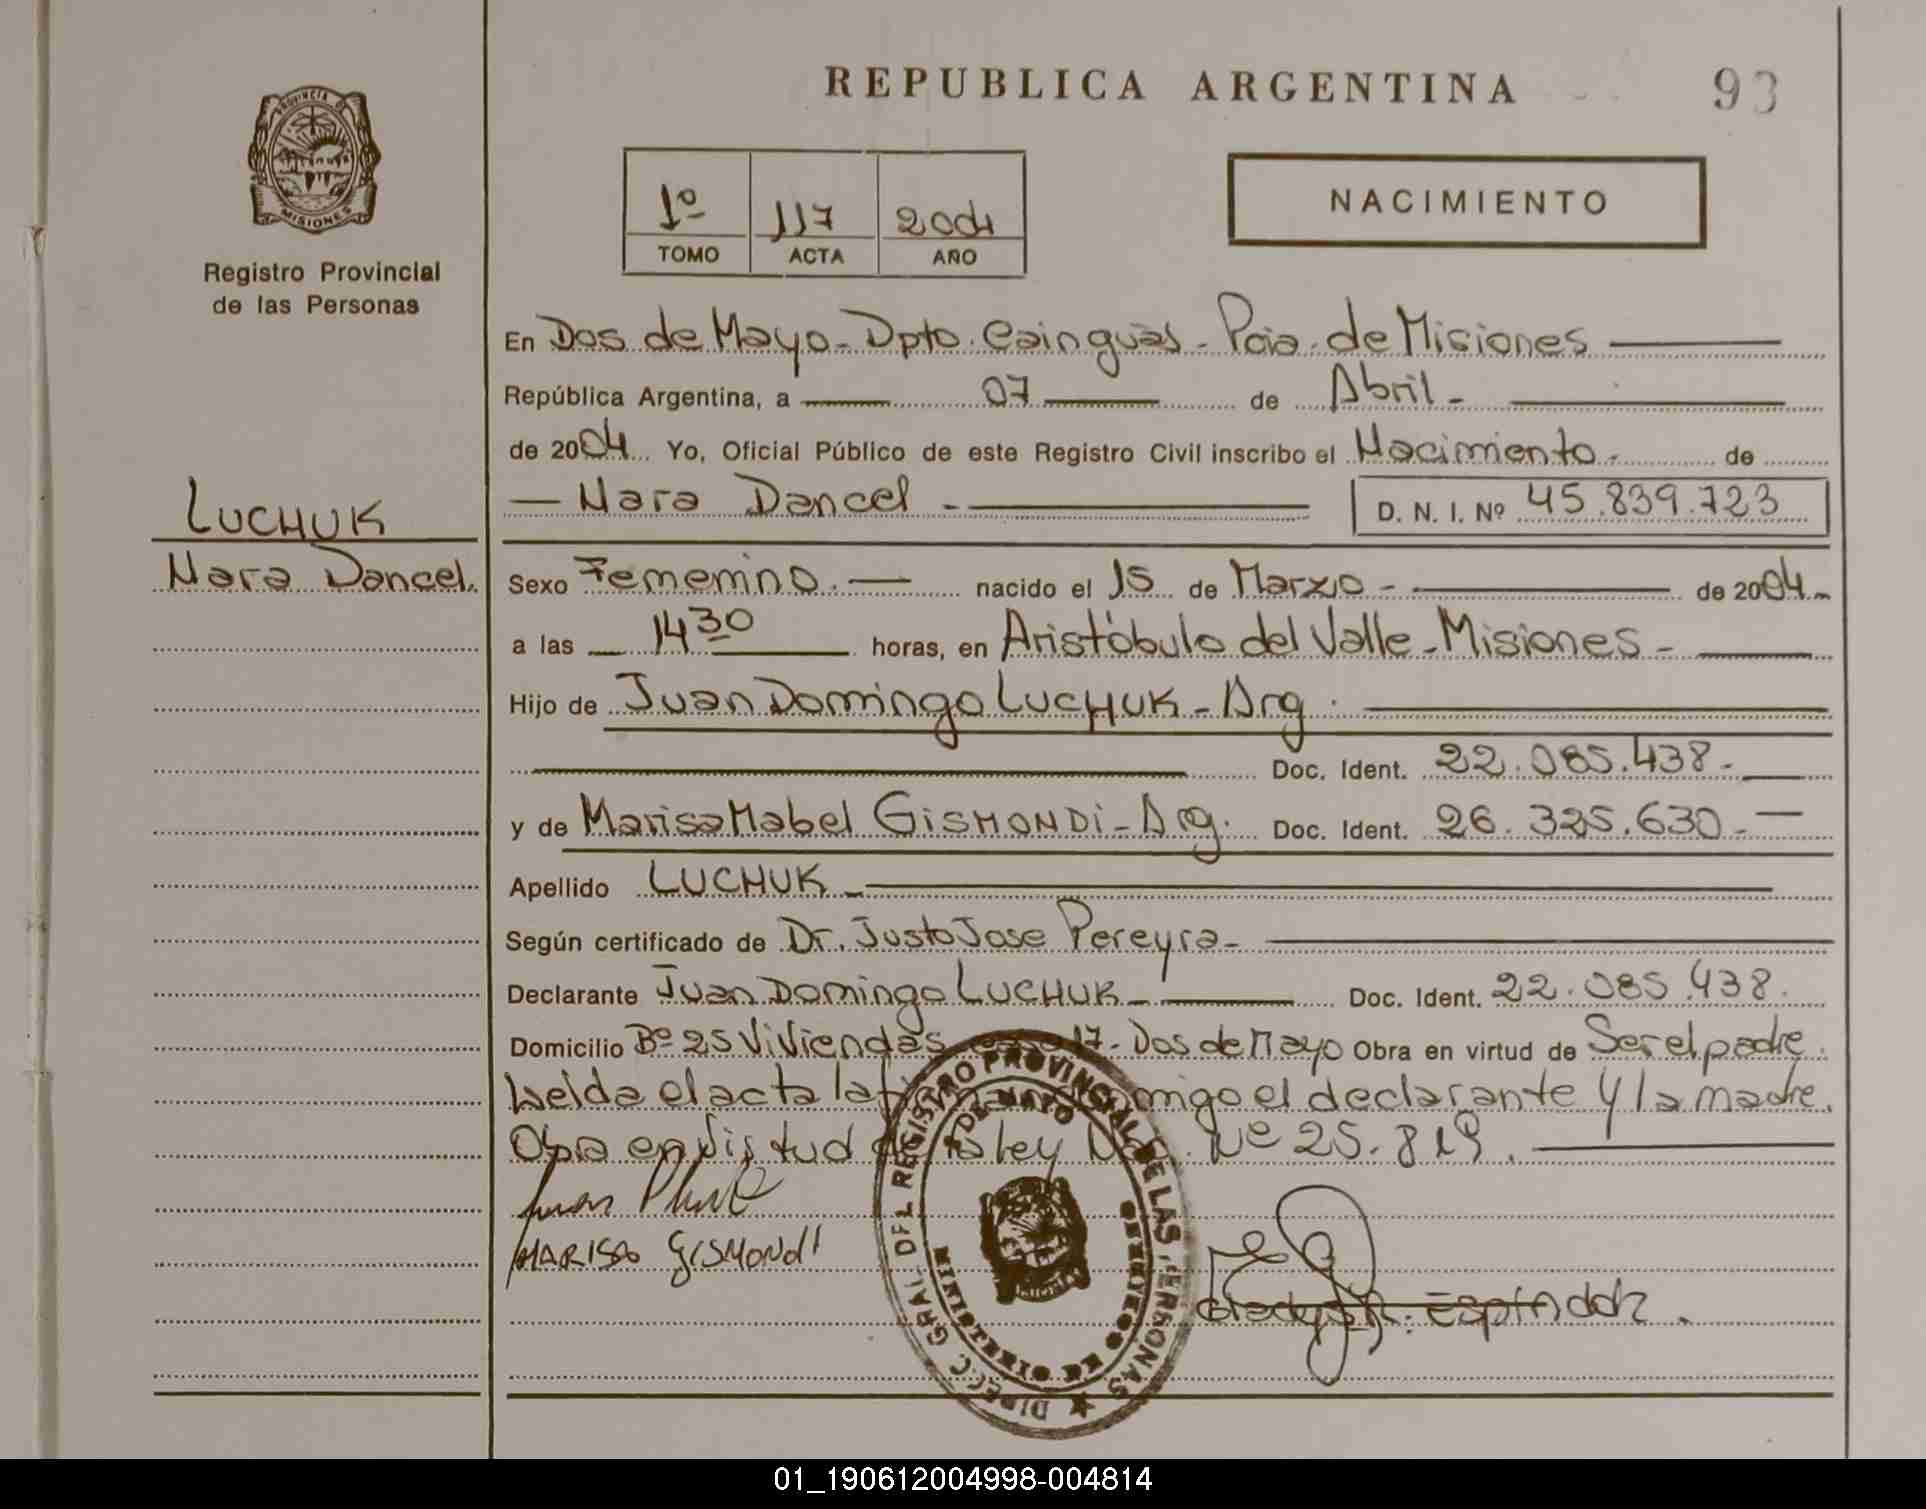 REPUBLICA ARGENTINA
93
PROVINCIA DE
MISIONES
Registro Provincial
de las Personas
1º 117 2004
TOMO ACTA AÑO
NACIMIENTO
En Dos de Mayo - Dpto. Cainguás - Pcia. de Misiones
República Argentina, a 07 de Abril -
de 2004 Yo, Oficial Público de este Registro Civil inscribo el Nacimiento - de
Nara Dancel - D. N. I. Nº 45.839.723
LUCHUK
Nara Dancel.
Sexo Femenino. nacido el 15 de Marzo - de 2004 -
a las 14 30 horas, en Aristóbulo del Valle - Misiones -
Hijo de Juan Domingo LUCHUK - Arg.
Doc. Ident. 22.085.438 -
y de Marisa Mabel GISMONDI - Arg. Doc. Ident. 26.325.630 -
Apellido LUCHUK -
Según certificado de Dr. Justo Jose Pereyra -
Declarante Juan Domingo LUCHUK - Doc. Ident. 22.085.438.
Domicilio Bº 25 Viviendas 17 - Dos de Mayo Obra en virtud de Ser el padre.
Leida el acta la conmigo el declarante y la madre.
Obra en virtud de la Ley Nº 25.819.
MARISA GISMONDI
Gladys Espíndola.
DIRECC. GRAL. DEL REGISTRO PROVINCIAL DE LAS PERSONAS
DE MAYO
MINISTERIO DE GOBIERNO
01_190612004998-004814